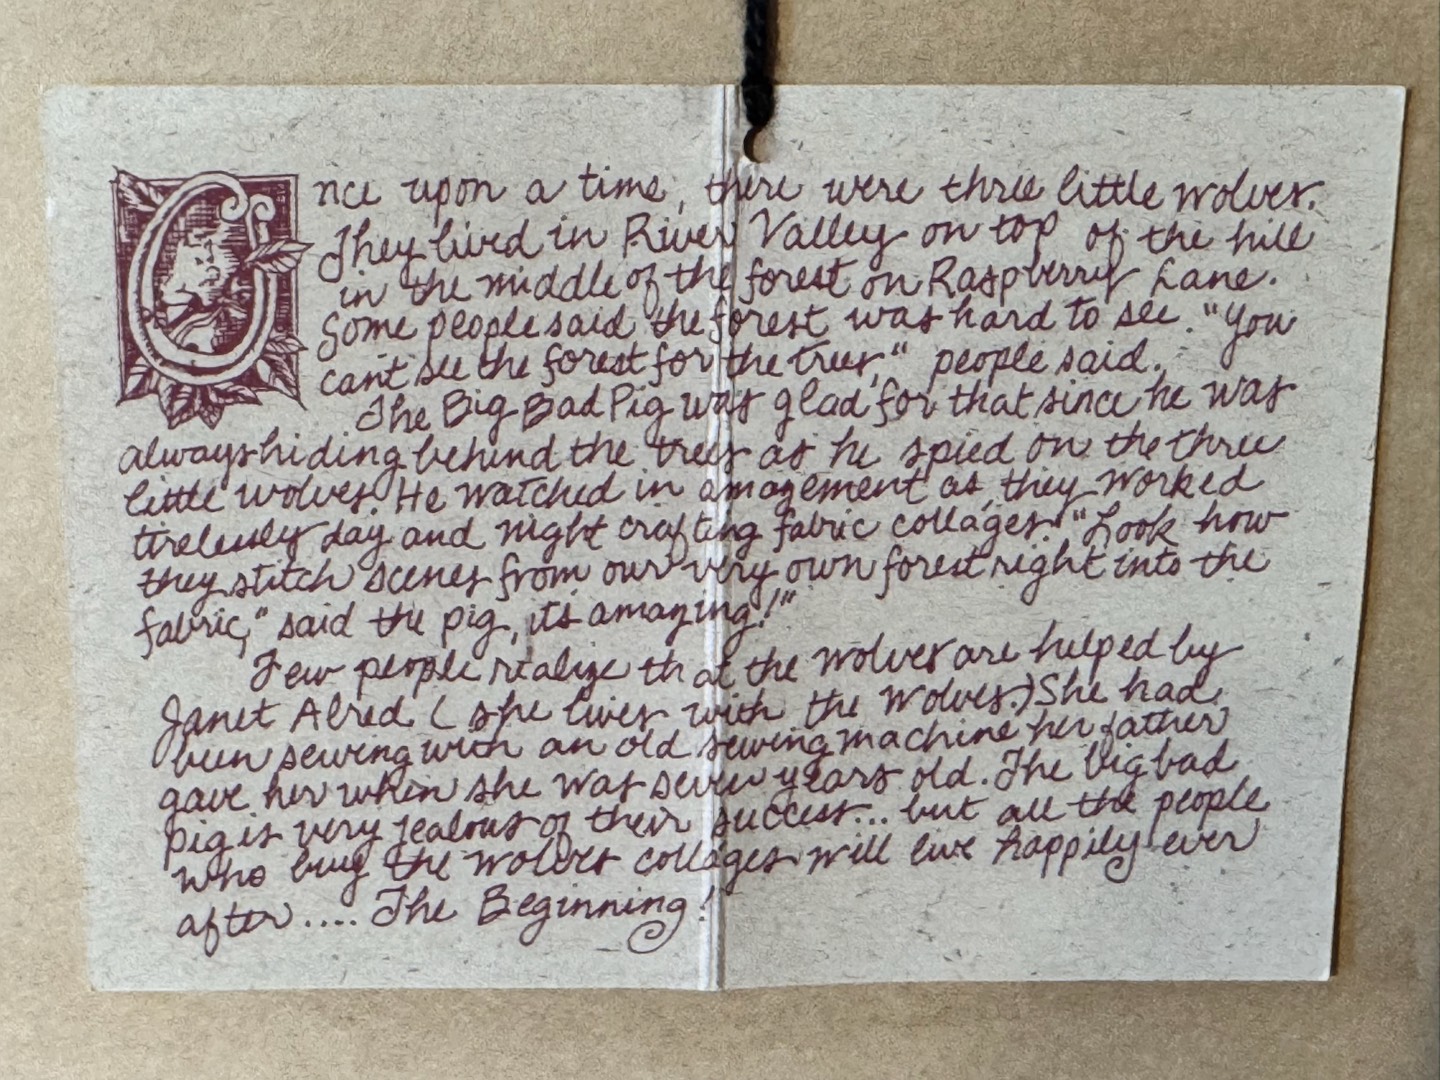 Once upon a time, there were three little wolves.
They lived in River Valley on top of the hill
in the middle of the forest on Raspberry Lane.
Some people said the forest was hard to see. "You
can't see the forest for the trees," people said.
The Big Bad Pig was glad for that since he was
always hiding behind the trees as he spied on the three
little wolves. He watched in amazement as they worked
tirelessly day and night crafting fabric collages. "Look how
they stitch scenes from our very own forest right into the
fabric," said the pig, it's amazing!"
Few people realize that the wolves are helped by
Janet Alred (she lives with the wolves.) She had
been sewing with an old sewing machine her father
gave her when she was seven years old. The big bad
pig is very jealous of their success... but all the people
who buy the wolves collages will live happily ever
after.... The Beginning!